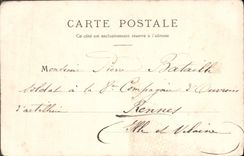 CARTE POSTALE
Ce côté est exclusivement réservé à l'adresse
Monsieur Pierre Bataille
Soldat à la 8e Compagnie d'Ouvriers
d'artillerie
Rennes
Ille et Vilaine